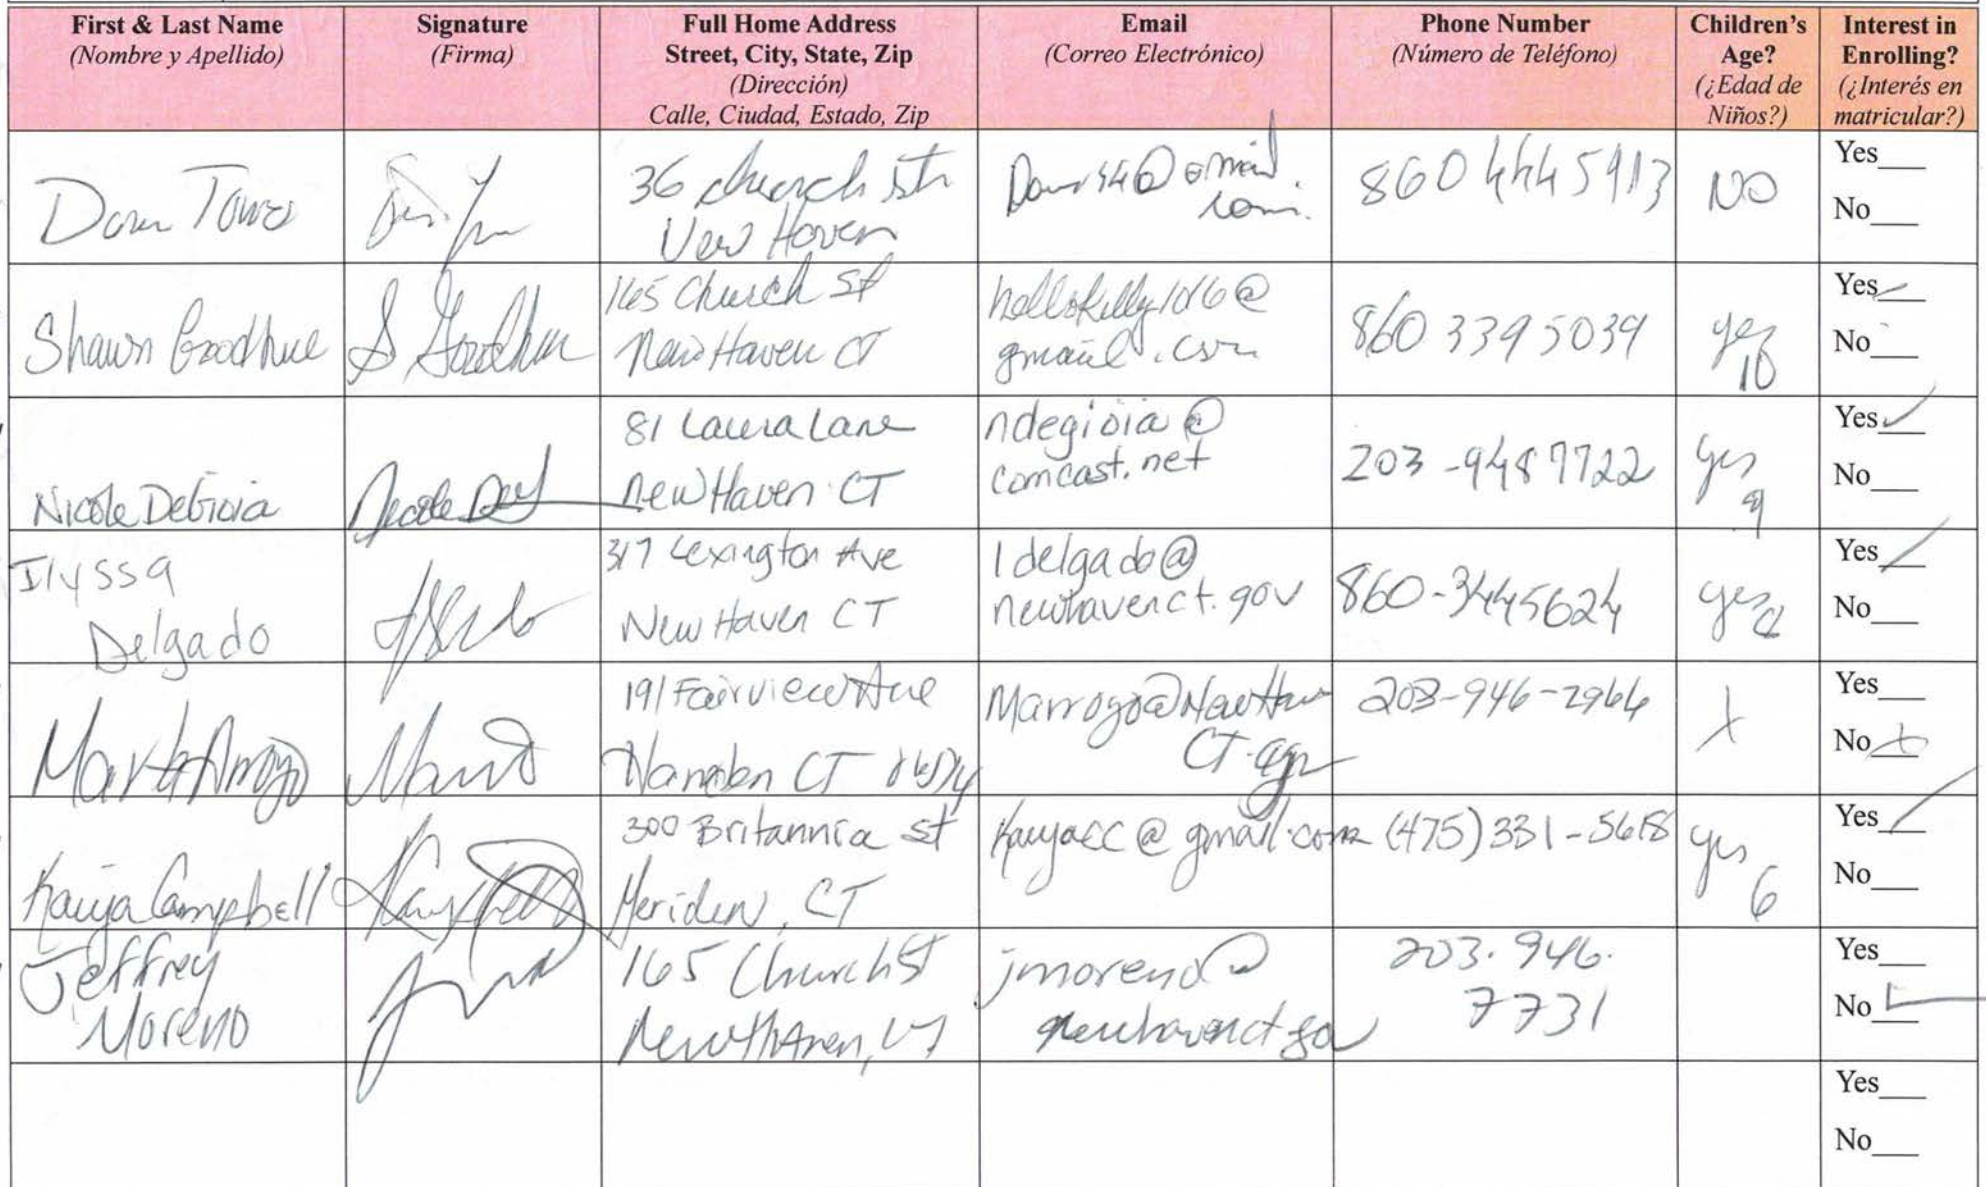 First & Last Name
(Nombre y Apellido)
Signature
(Firma)
Full Home Address
Street, City, State, Zip
(Dirección)
Calle, Ciudad, Estado, Zip
Email
(Correo Electrónico)
Phone Number
(Número de Teléfono)
Children's
Age?
(¿Edad de
Niños?)
Interest in
Enrolling?
(¿Interés en
matricular?)
36 church str
New Haven
com.
860 4445913
NO
Yes___
No___
Shawn Goodhue
S Goodhue
165 Church St
New Haven CT
gmail.com
860 3395039
yes
10
Yes___
No___
Nicole DeGioia
81 Laura Lane
New Haven CT
ndegioia@
comcast.net
203-9487722
yes
9
Yes✓
No___
Ilyssa
Delgado
317 Lexington Ave
New Haven CT
Idelgado@
newhavenct.gov
860-3445624
yes
Yes___
No___
191 Fairview Ave
Hamden CT
203-946-2966
X
Yes___
No___
Kaiya Campbell
300 Britannia St
Meriden, CT
(475)331-5618
yes
6
Yes___
No___
Jeffrey
Moreno
165 Church St
New Haven, CT
jmoreno@
newhavenct.gov
203.946.
7731
Yes___
No___
Yes___
No___